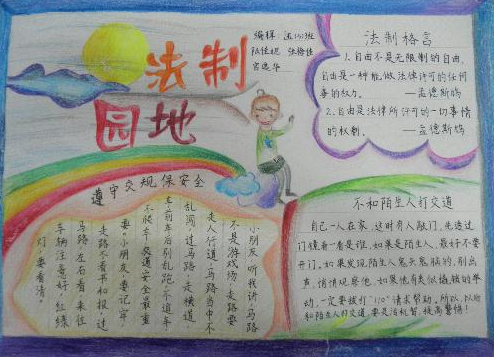 法制
园地
编辑
法制格言
1.自由不是无限制的自由,
自由是一种能做法律许可的任何
事的权力。 —孟德斯鸠
2.自由是法律所许可的一切事情
的权利。 —孟德斯鸠
遵守交规保安全
小朋友听我讲,马路
不是游戏场,走路要
走人行道,马路当中不
乱闯,过马路,走横道
车前车后别乱跑,不追车
不爬车,交通安全最重
要。小朋友,要记牢,
走路不看书和报,过
马路,左右看,来往
车辆注意好,红绿
灯,要看清。
不和陌生人打交道
自己一人在家,这时有人敲门,先透过
门镜看看是谁,如果是陌生人,最好不要
开门。如果发现陌生人鬼头鬼脑的,别出
声,悄悄观察他,如果他有类似撬锁的举
动,一定要拨打"110"请求帮助。所以,以后
和陌生人打交道,要灵活机智,提高警惕!